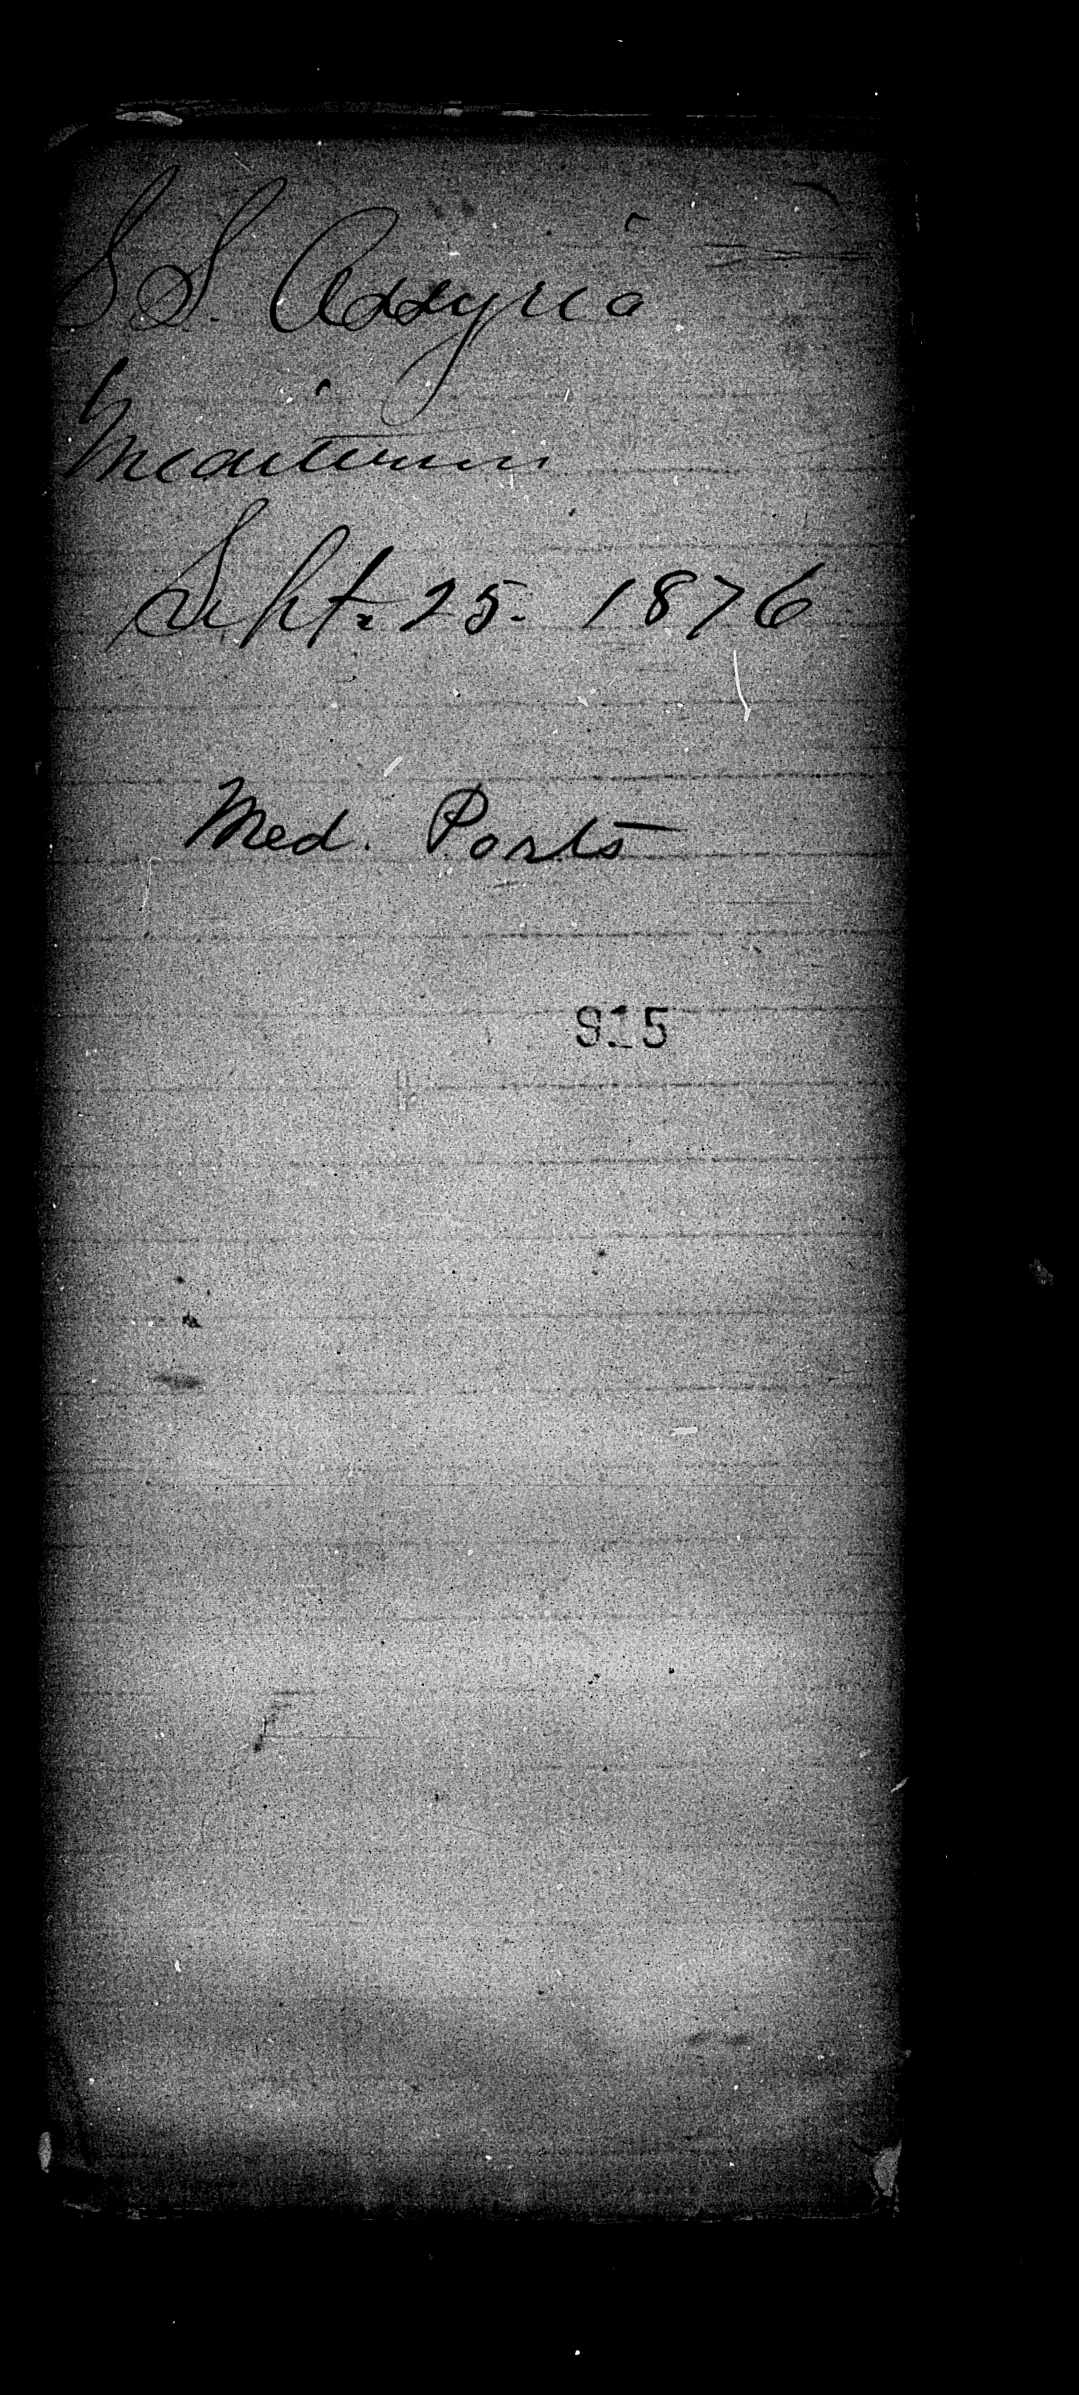 S.S. Assyria
Sept. 25. 1876
Med. Ports
915